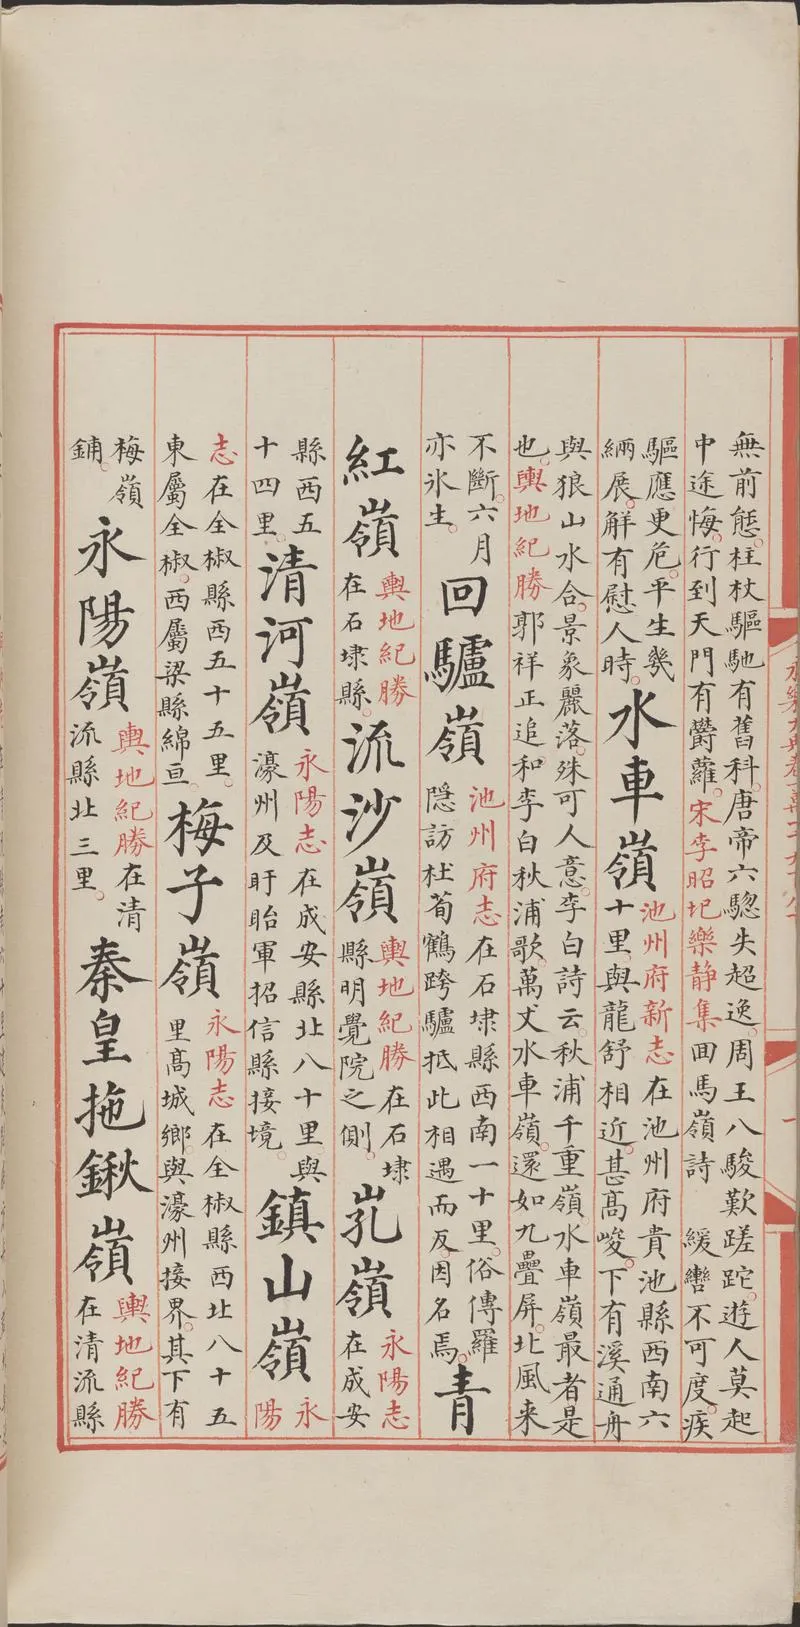 無前態。柱杖驅馳有舊科。唐帝六驄失超逸。周王八駿歎蹉跎。遊人莫起
中途悔。行到天門有欝蘿。宋李昭玘樂静集回馬嶺詩 緩轡不可度。疾
驅應更危。平生幾
緉屐。解有慰人時。
水車嶺
池州府新志在池州府貴池縣西南六
十里。與龍舒相近。甚髙峻。下有溪通舟
與狼山水合。景象麗落。殊可人意。李白詩云。秋浦千重嶺。水車嶺最者是
也。輿地紀勝郭祥正追和李白秋浦歌。萬丈水車嶺。還如九疊屏。北風来
不斷。六月
亦氷生。
回驢嶺
池州府志在石埭縣西南一十里。俗傳羅
隠訪杜荀鶴跨驢抵此相遇而反。因名焉。
青
紅嶺
輿地紀勝
在石埭縣。
流沙嶺
輿地紀勝在石埭
縣明覺院之側。
嶺
永陽志
在成安
縣西五
十四里。
清河嶺
永陽志在成安縣北八十里。與
濠州及盱眙軍招信縣接境。
鎮山嶺
永
陽
志在全椒縣西五十五里。
東屬全椒。西屬梁縣綿亘。
梅子嶺
永陽志在全椒縣西北八十五
里髙城鄉。與濠州接界。其下有
梅嶺
鋪。
永陽嶺
輿地紀勝在清
流縣北三里。
秦皇拖鍬嶺
輿地紀勝
在清流縣